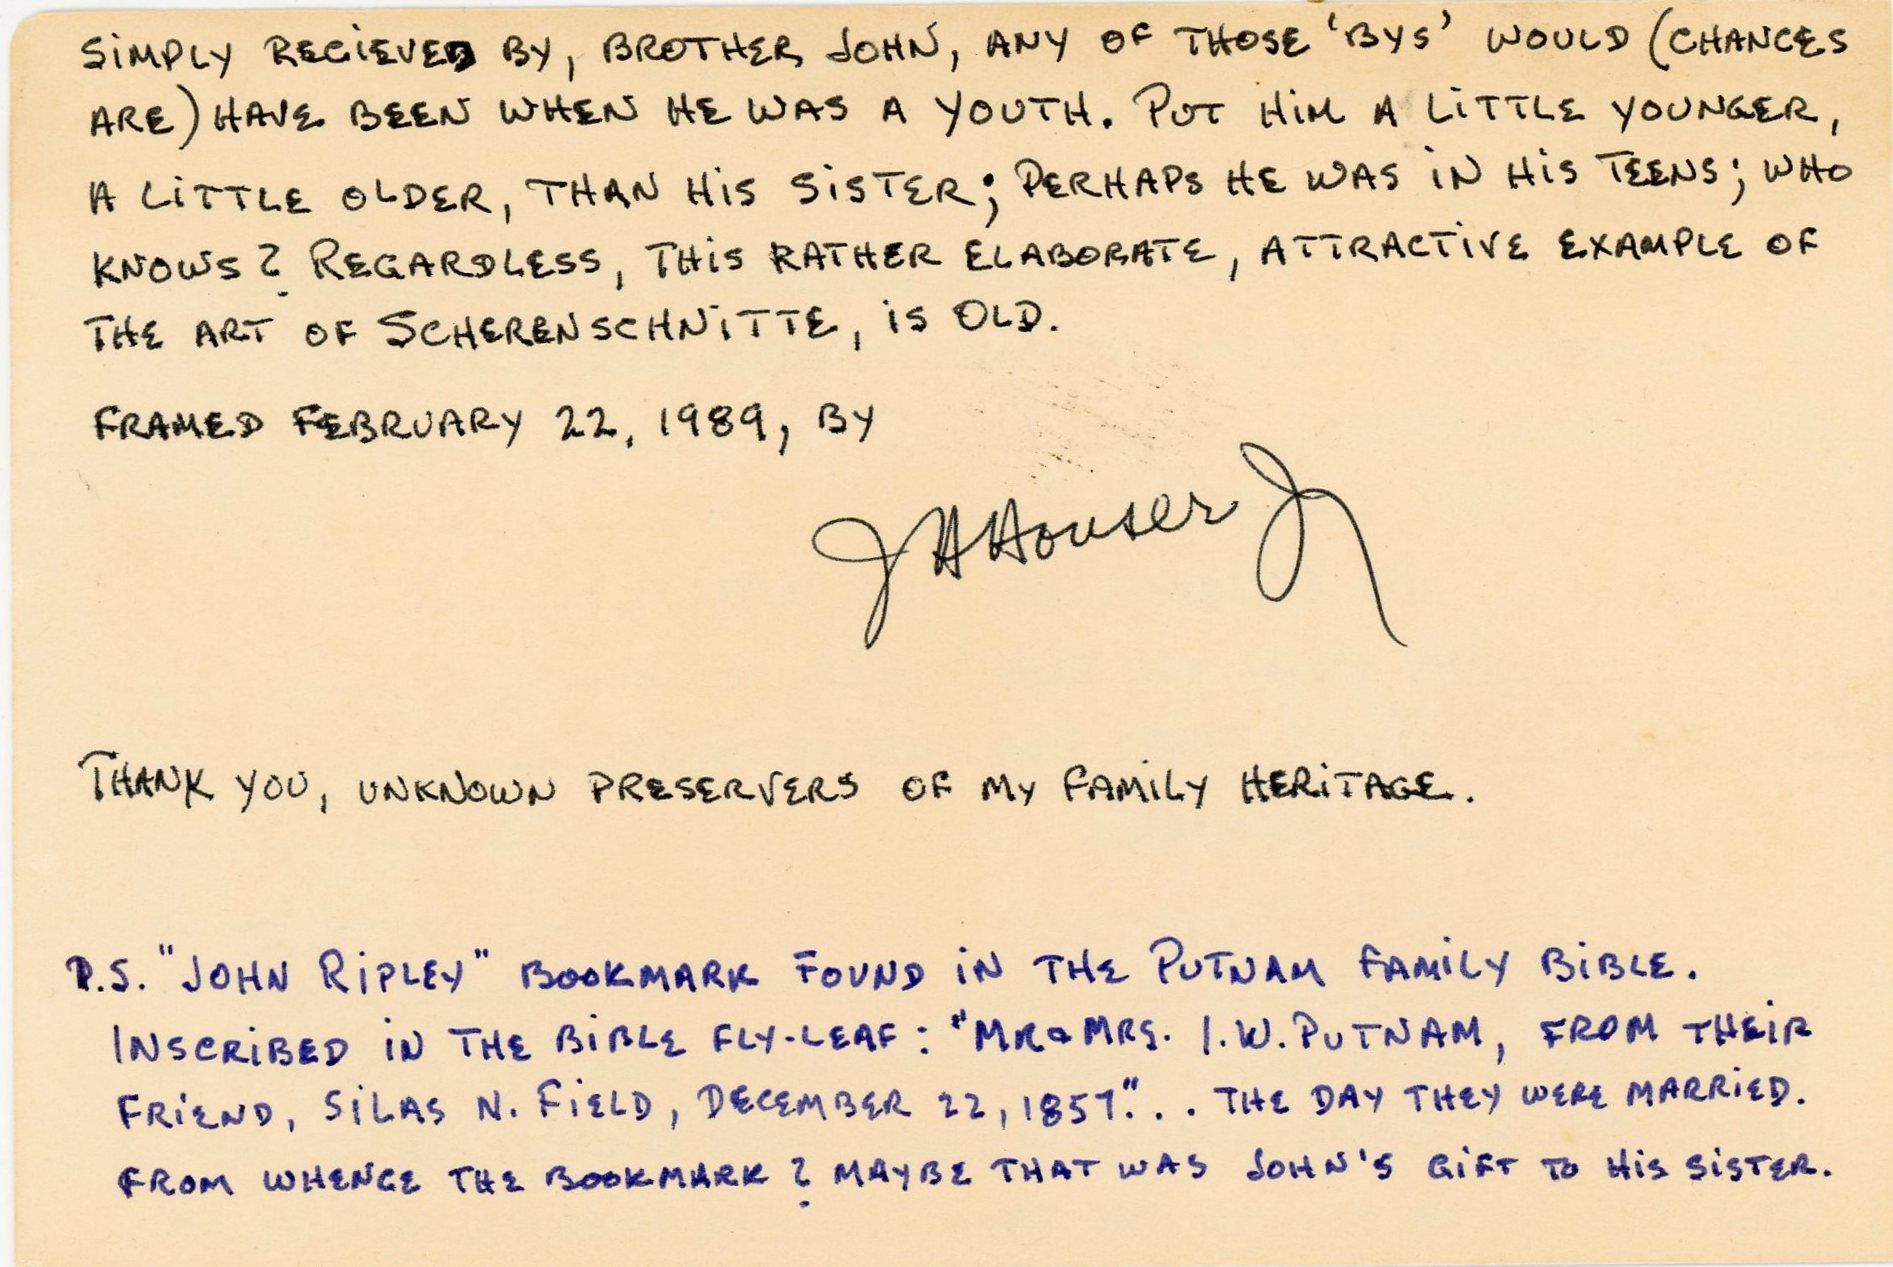 SIMPLY RECIEVED BY, BROTHER JOHN, ANY OF THOSE 'BYS' WOULD (CHANCES
ARE) HAVE BEEN WHEN HE WAS A YOUTH. PUT HIM A LITTLE YOUNGER,
A LITTLE OLDER, THAN HIS SISTER; PERHAPS HE WAS IN HIS TEENS; WHO
KNOWS? REGARDLESS, THIS RATHER ELABORATE, ATTRACTIVE EXAMPLE OF
THE ART OF SCHERENSCHNITTE, IS OLD.
FRAMED FEBRUARY 22, 1989, BY
J H Houser Jr
THANK YOU, UNKNOWN PRESERVERS OF MY FAMILY HERITAGE.
P.S. "JOHN RIPLEY" BOOKMARK FOUND IN THE PUTNAM FAMILY BIBLE.
INSCRIBED IN THE BIBLE FLY-LEAF: "MR & MRS. I.W. PUTNAM, FROM THEIR
FRIEND, SILAS N. FIELD, DECEMBER 22, 1857."... THE DAY THEY WERE MARRIED.
FROM WHENCE THE BOOKMARK? MAYBE THAT WAS JOHN'S GIFT TO HIS SISTER.